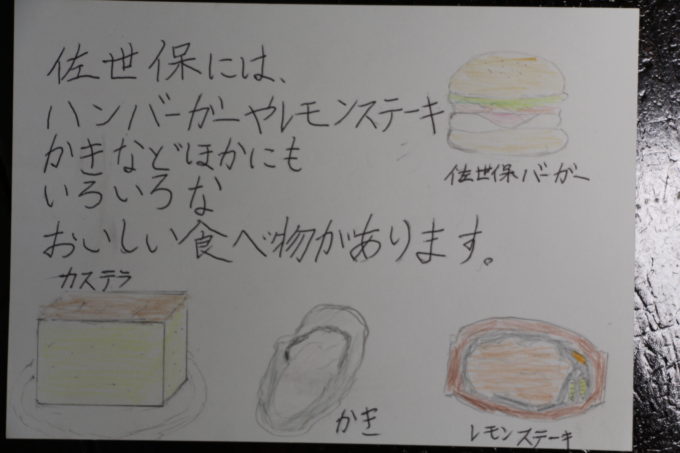 佐世保には、
ハンバーガーやレモンステーキ
かきなどほかにも
いろいろな
おいしい食べ物があります。
佐世保バーガー
カステラ
かき
レモンステーキ